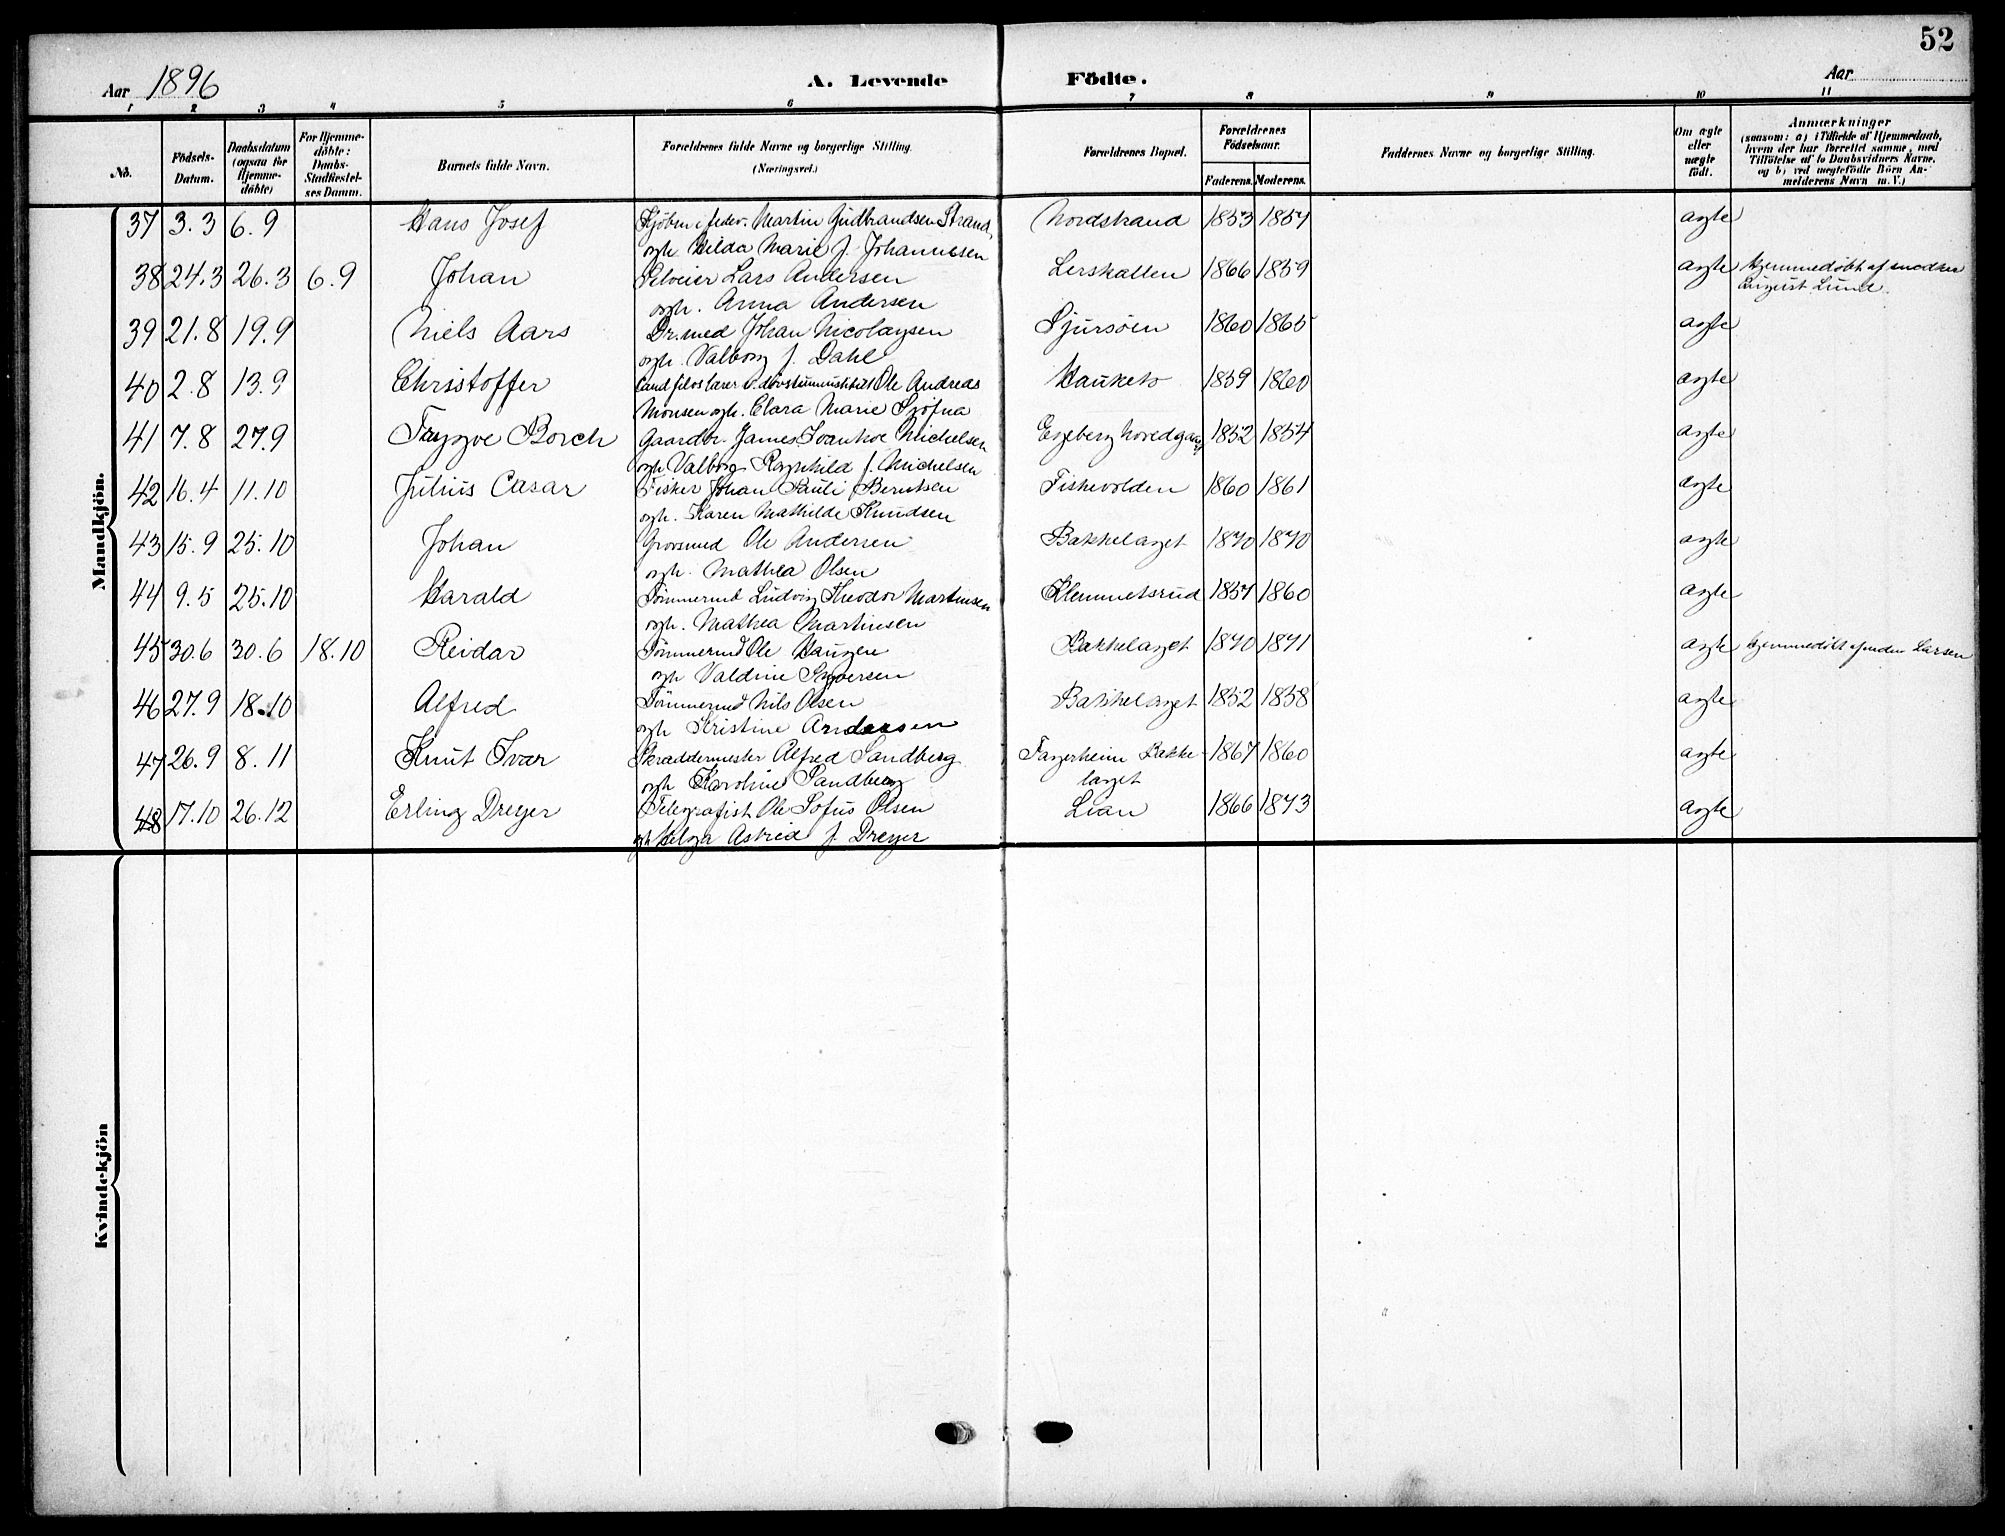 52
Aar 1896 A. Levende Födte. Aar
1 2 3 4 5 6 7 8 9 10 11
No. Födsels-Datum. Daabsdatum (ogsaa för Hjemme-döbte) For Hjemme-döbte: Daabs-Stadfæstel-ses Datum. Barnets fulde Navn. Forældrenes fulde Navne og borgerlige Stilling. (Næringsvei.) Forældrenes Bopæl. Forældrenes Födselsaar. Faderens. Moderens. Faddernes Navne og borgerlige Stilling. Om ægte eller uægte födt. Anmærkninger (saasom: a) i Tilfælde af Hjemmedaab, hvem der har forrettet samme, med Tilföielse af to Daabsvidners Navne, og b) ved uægtefödte Börn An-melderens Navn m. V.)
Mandkjön.
37 3.3 6.9 Hans Josef Martin Gudbrandsen Strand Nordstrand 1853 1857 ægte
ogh. Hilda Marie f. Johannesen
38 24.3 26.3 6.9 Johan Selveier Lars Andersen Lerskallen 1866 1859 ægte Hjemmedøbt af snedker
ogh. Anna Andersen August Lund.
39 21.8 19.9 Niels Aars Dr. med Johan Nicolaysen Sjursøen 1860 1865 ægte
ogh. Valborg f. Dahl
40 2.8 13.9 Christoffer Cand filos lærer v. døvstuminstitut Ole Andreas Hauketo 1859 1860 ægte
Monsen ogh. Clara Marie Sjøfna
41 7.8 27.9 Tryggve Borch Gaardbr. James Ivanhoe Michelsen Egeberg hovedgaard 1852 1854 ægte
ogh. Valborg Ragnhild f. Michelsen
42 16.4 11.10 Julius Cæsar Fisker Johan Pauli Berntsen Fiskevolden 1860 1861 ægte
ogh. Karen Mathilde Knudsen
43 15.9 25.10 Johan Grovsmed Ole Andersen Bakkelaget 1870 1870 ægte
ogh. Mathea Olsen
44 9.5 25.10 Harald Tømmermd Ludvig Theodor Martinsen Klemmetsrud 1857 1860 ægte
ogh. Mathea Martinsen
45 30.6 30.6 18.10 Reidar Tømmermd Ole Haugen Bakkelaget 1870 1871 ægte Hjemmedøbt af Larsen
ogh Valdine Syversen
46 27.9 18.10 Alfred Tømmermd Nils Olsen Bakkelaget 1852 1858 ægte
ogh Kristine Andersen
47 26.9 8.11 Knut Ivar Skræddermester Alfred Sandberg Fagerheim Bakke- 1867 1860 ægte
ogh Karoline Sandberg laget
48 17.10 26.12 Erling Dreyer Telegrafist Ole Sofus Olsen Lian 1866 1873 ægte
ogh Helga Astrid f. Dreyer
Kvindekjön